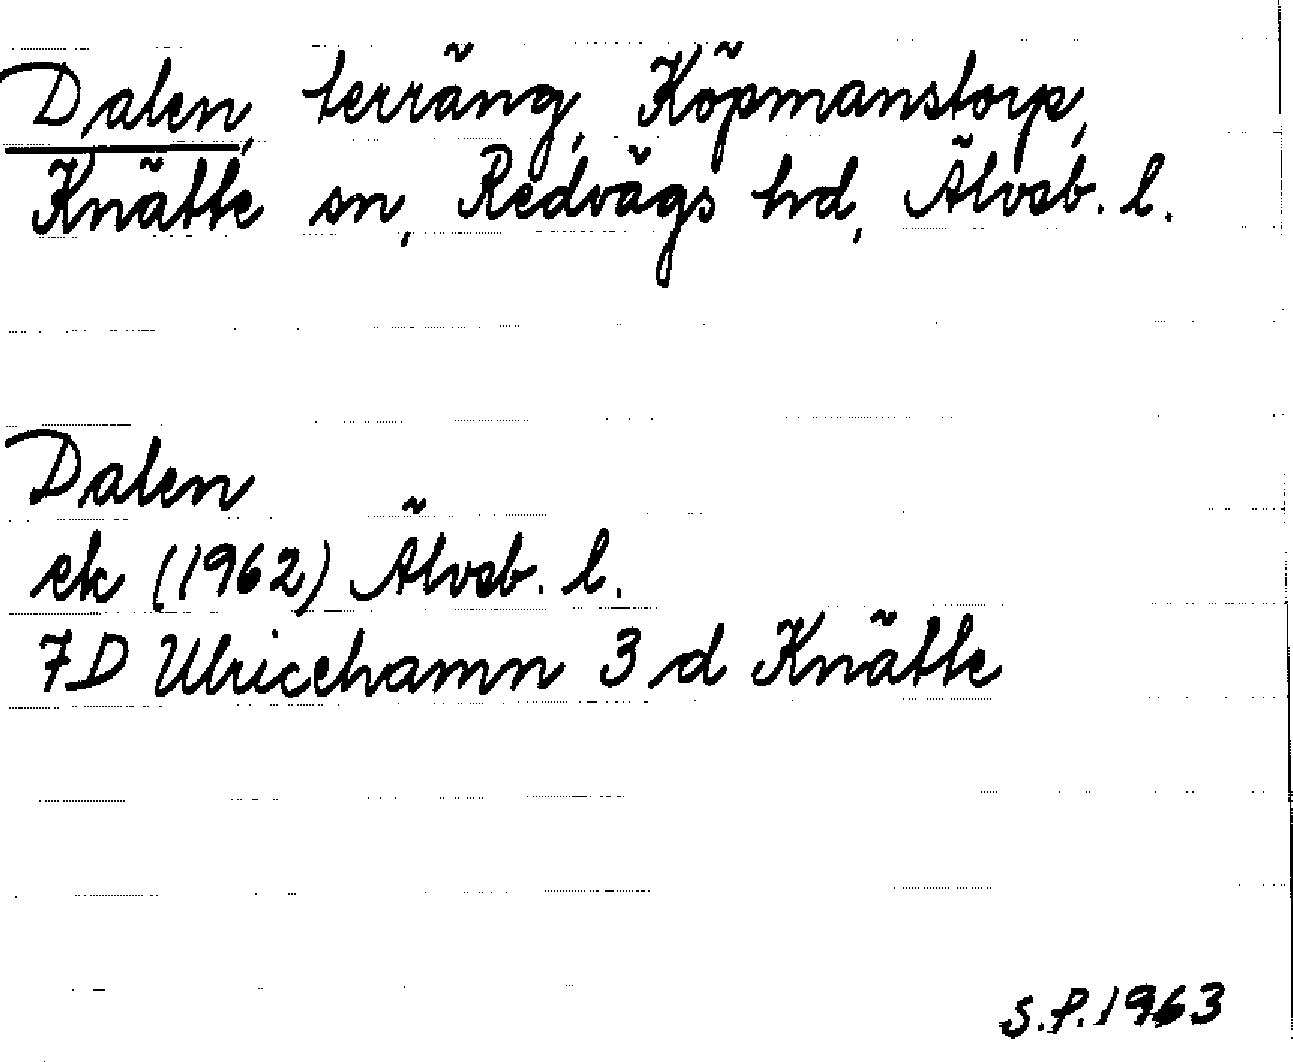 Dalen, terräng, Köpmanstorp,
Knätte sn, Redvägs hd, Älvsb. l.
Dalen
ek (1962) Älvsb. l.
7D Ulricehamn 3 d Knätte
S.P. 1963